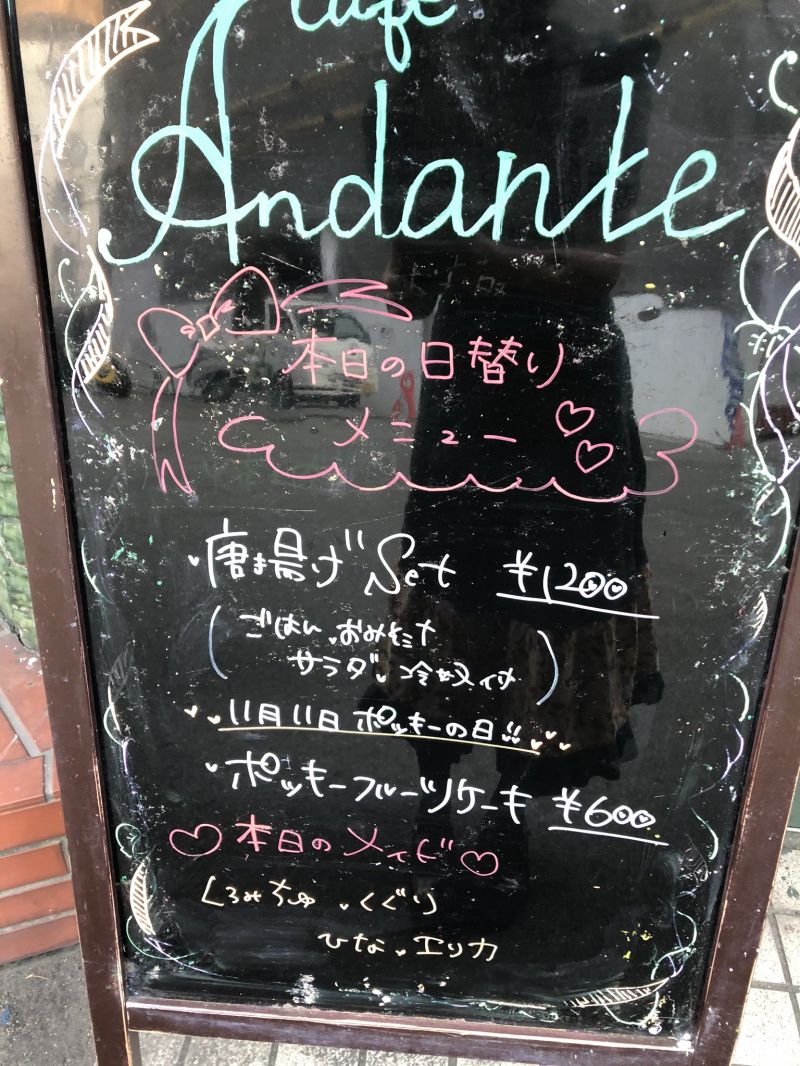 Cafe
Andante
本日の日替り
メニュー
唐揚げSet ¥1200
(ごはん、おみそ汁
サラダ、冷奴付)
11月11日 ポッキーの日!!
ポッキーフルーツケーキ ¥600
本日のメイド
くるみちゅ、くぐり
ひな、エリカ